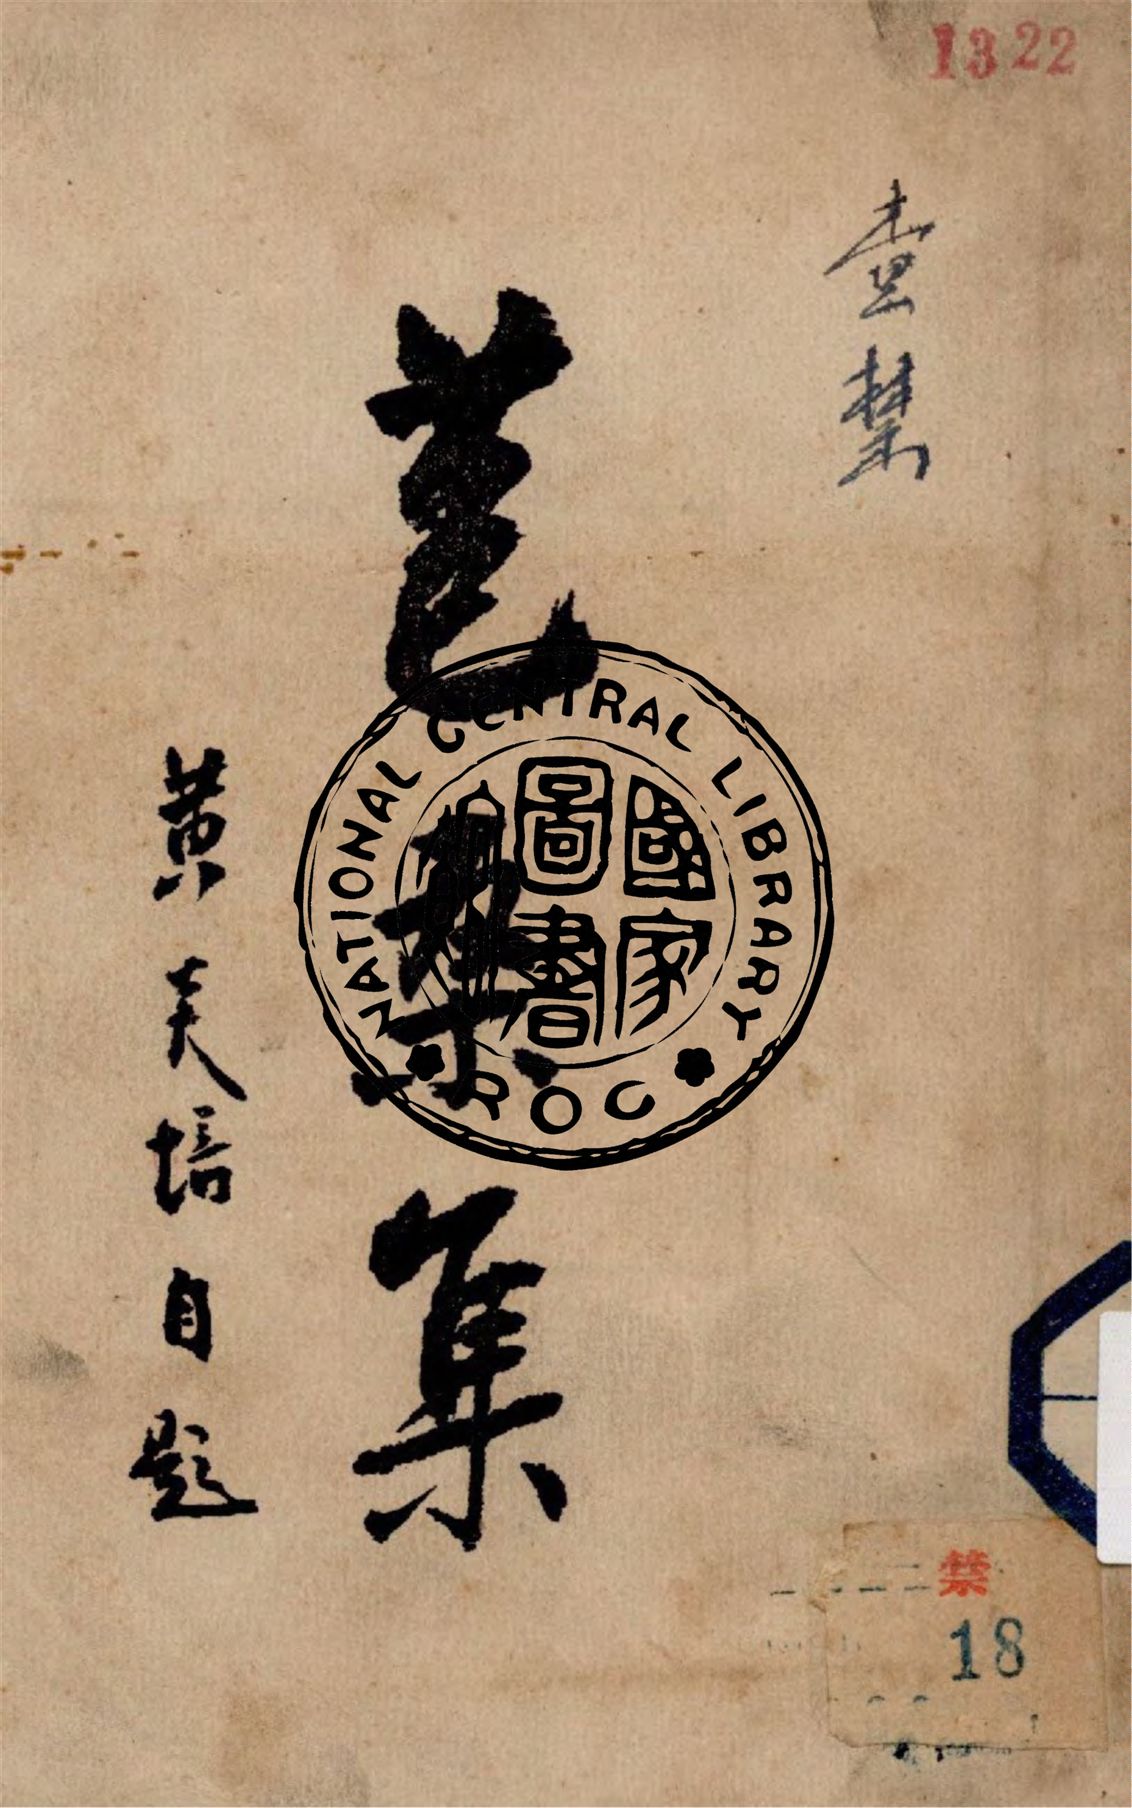 1322
查禁
苞桑集
黃炎培自題
NATIONAL CENTRAL LIBRARY
國家圖書館
ROC
禁
18